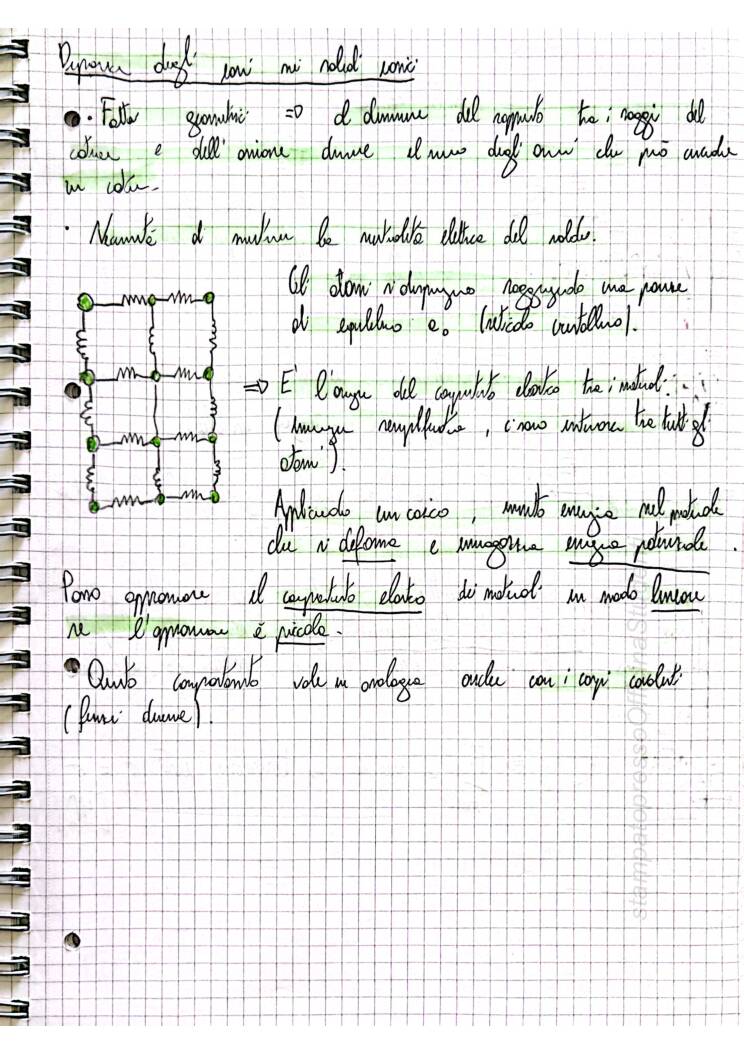 degli ioni nei solidi ionici
· Fattori geometrici => al diminuire del rapporto tra i raggi del
catione e dell'anione diminuisce il numero degli anioni che può circondare
un catione.
· Necessità di mantenere la neutralità elettrica del solido.
Gli atomi si dispongono raggiungendo una posizione
di equilibrio a₀ (reticolo cristallino).
=> E' l'origine del comportamento elastico tra i materiali.
(immagine semplificativa, ci sono interazioni tra tutti gli
atomi).
Applicando un carico, immetto energia nel materiale
che si deforma e immagazzina energia potenziale.
Posso approssimare il comportamento elastico dei materiali in modo lineare
se l' è piccola.
Questo comportamento vale in analogia anche con i corpi covalenti
(forze diverse).
stampatopressoOfficinaStu